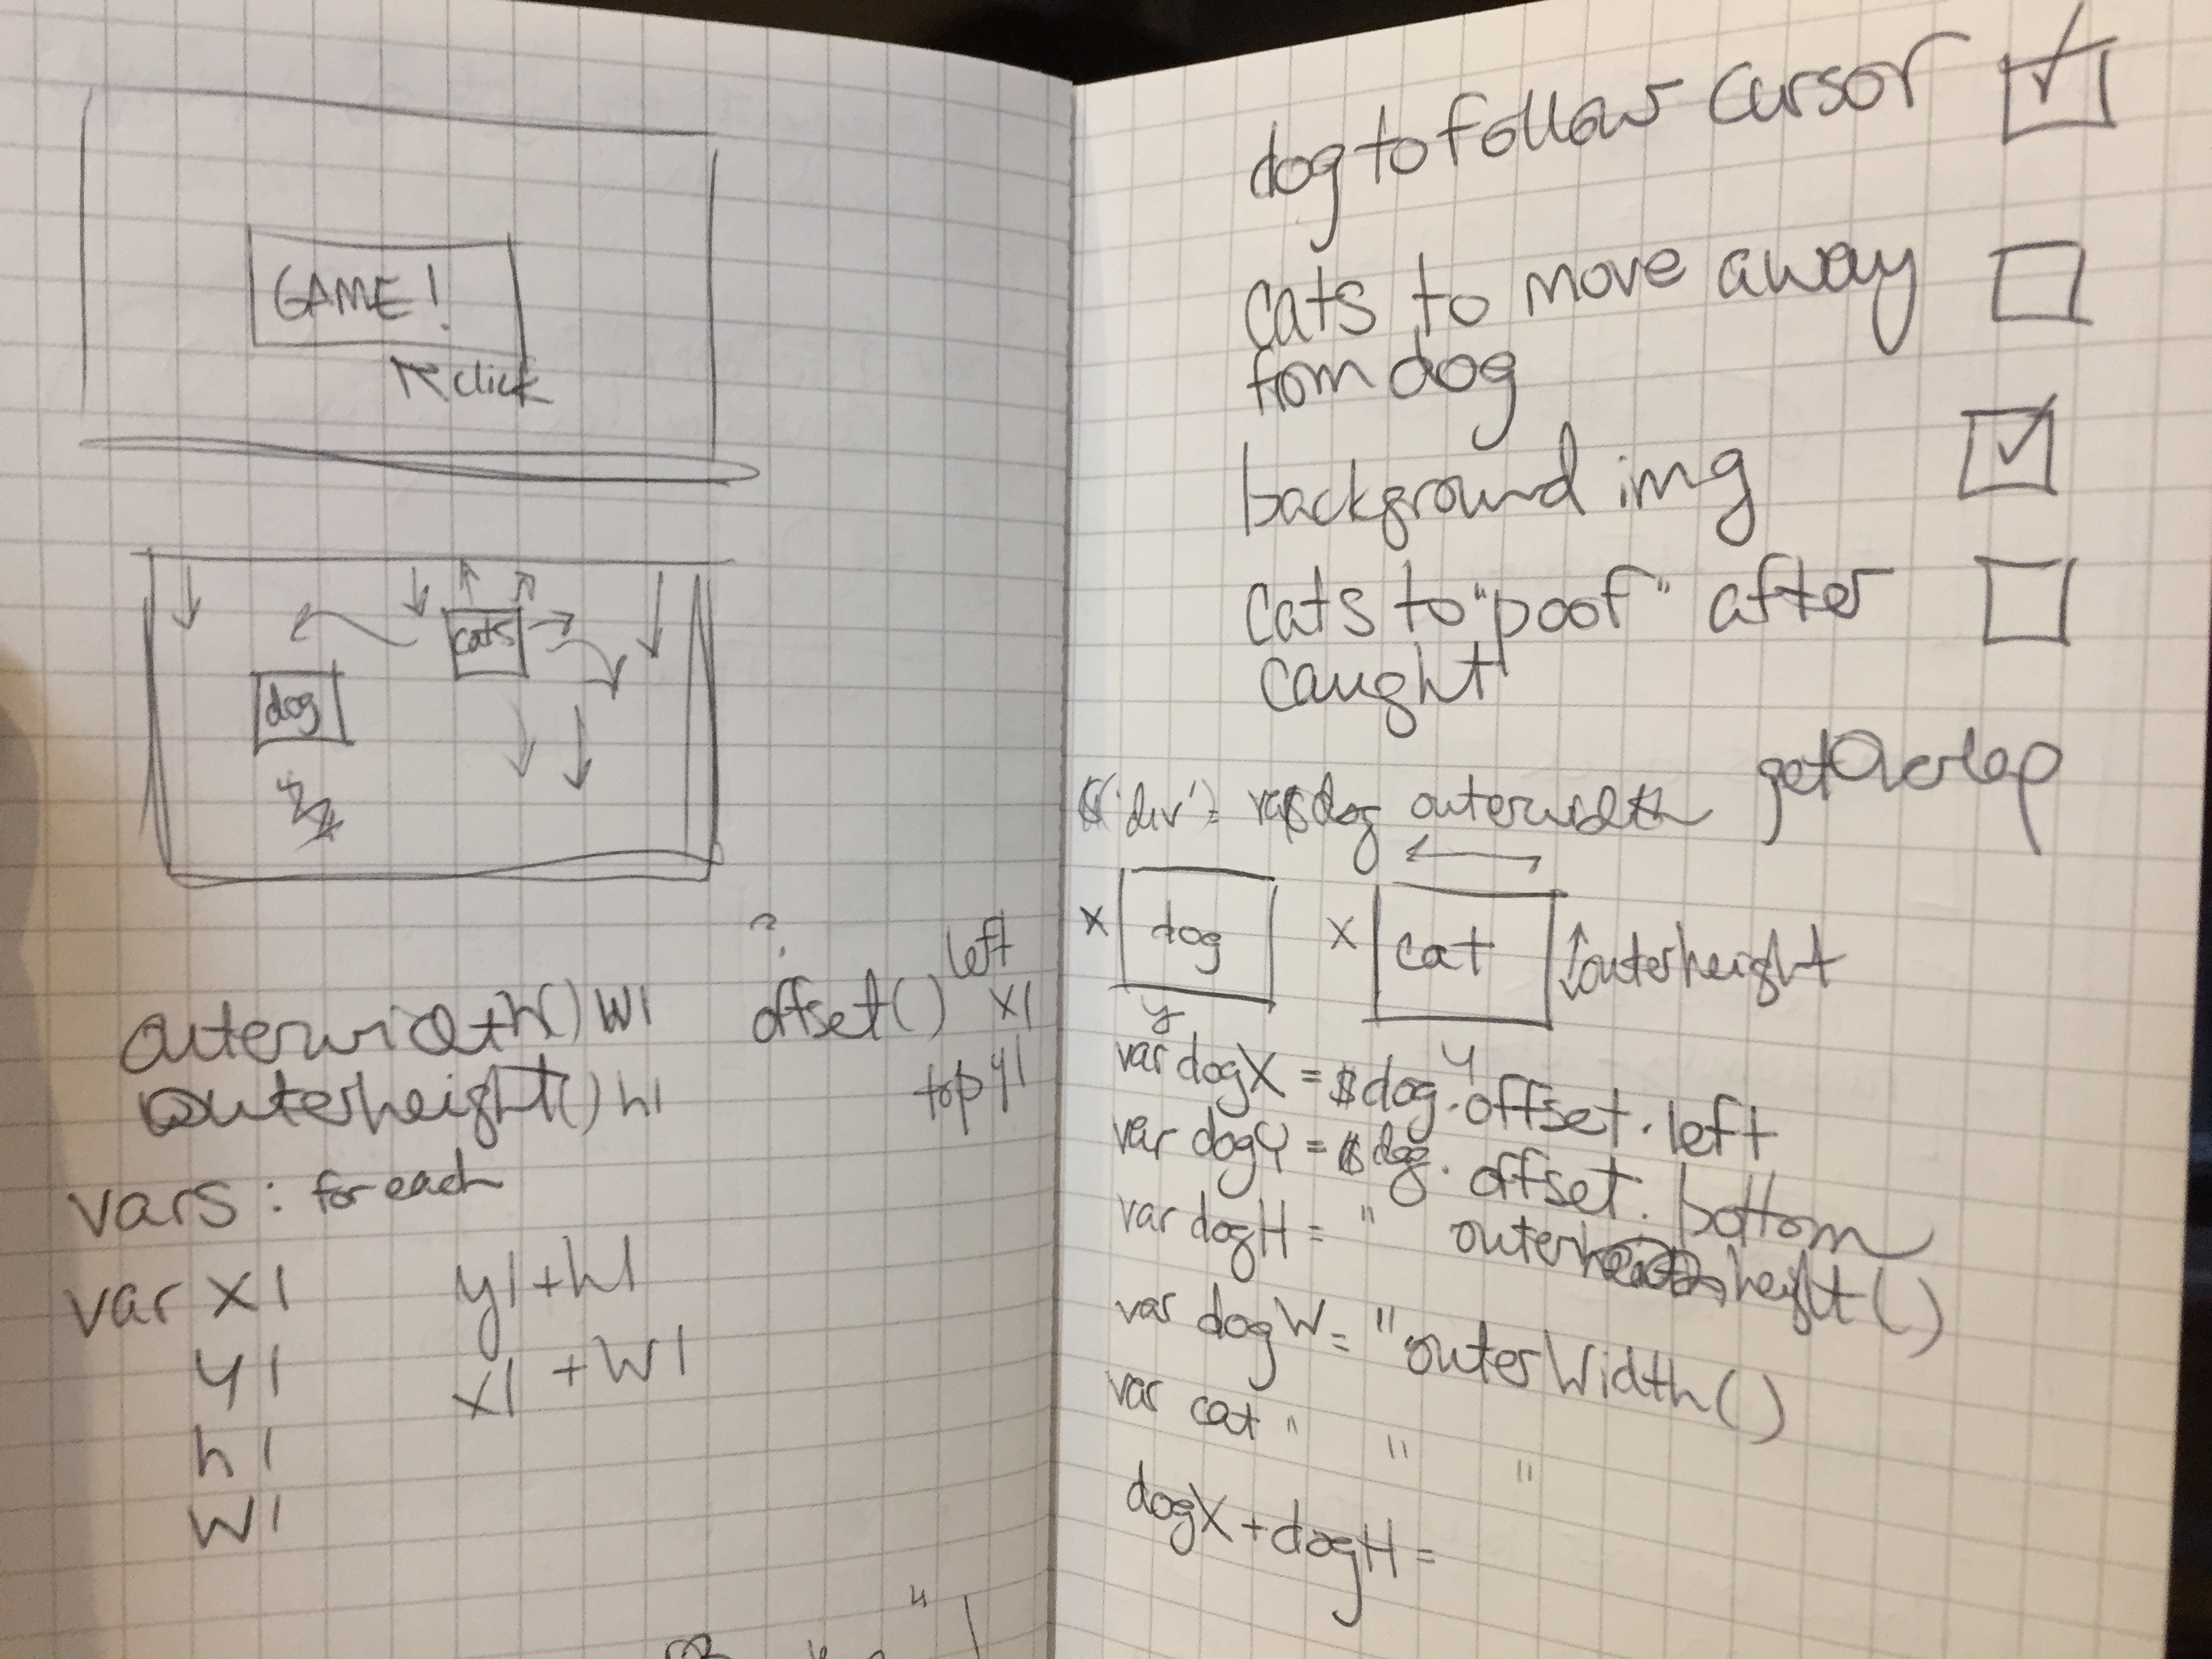 GAME!
click
cats
dog
?
outerwidth() W1
offset() left x1
outerheight() h1
top y1
vars: for each
var x1
y1+h1
y1
x1 + W1
h1
W1
dog to follow cursor
cats to move away
from dog
background img
cats to "poof" after
caught
getOverlap
$('div') = var $dog outerwidth
x dog
x cat
outerheight
y
y
var dogX = $dog.offset.left
var dogY = $dog.offset.bottom
var dogH = " outerheight()
var dogW = " outerWidth()
var cat " " "
dogX + dogH =